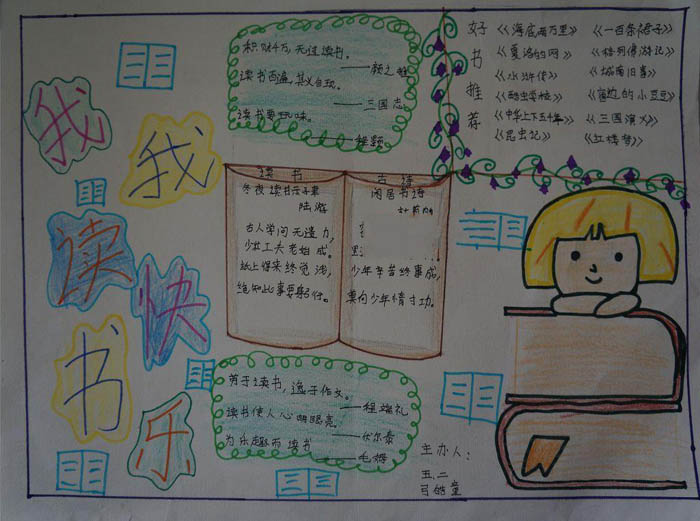 我读书
我快乐
积财千万,无过读书。
——颜之推
读书百遍,其义自现。
——三国志
读书要玩味。
——程颢
好书推荐
《海底两万里》
《夏洛的网》
《水浒传》
《昆虫记》
《一百条裙子》
《格列佛游记》
《城南旧事》
《窗边的小豆豆》
《三国演义》
《红楼梦》
读书
冬夜读书示子聿
陆游
古人学问无遗力,
少壮工夫老始成。
纸上得来终觉浅,
绝知此事要躬行。
古诗
闲居书
少年辛苦终事成,
莫向少年惰寸功。
劳于读书,逸于作文。
——程端礼
读书使人心明眼亮。
——伏尔泰
为乐趣而读书
——毛姆
主办人:
五.二